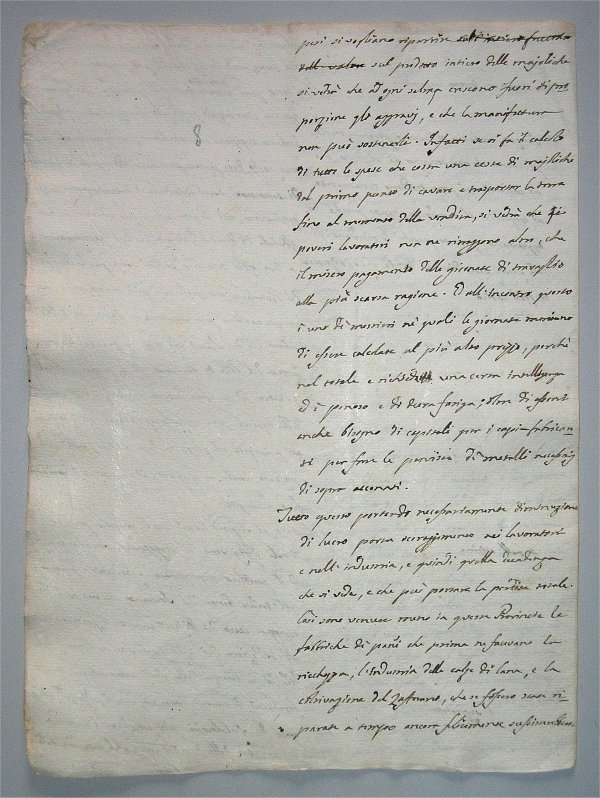 pesi si vogliano ripartire sull'intiero
sul prodotto intiero delle majoliche
si vedrà che ad ogni salma crescono fuori di pro
porzione gli aggravj, e che la manifattura
non può sostenerli. Infatti se si fa il calcolo
di tutte le spese che costa una cotta di majoliche
dal primo punto di cavare e trasportar la terra
fino al momento della vendita, si vedrà che i
poveri lavoratori non ne ritraggono altro, che
il misero pagamento delle giornate di travaglio
alla più scarsa ragione. Dall'incontro questo
è uno di mestieri ne' quali le giornate meritano
di essere calcolate al più alto prezzo, perchè
nel totale e richiede una certa intelligenza
ed è penoso e di dura fatiga; oltre di essere
anche bisogno di capitali per i capi-fabrican-
ti per fare le provista di metalli necessarj
di sopra accennati.
Tutto questo portando necessariamente diminuzione
di lucro porta scoraggimento nei lavoratori
e nell'industria, e quindi quella decadenza
che si vede, e che può portare la perdita totale.
Così sono venute meno in questa Provincia le
fabbriche di panni che prima ne facevano la
ricchezza, l'industria delle calze di lana, e la
coltivazione del Zaffarano, che se fossero state ri-
parate a tempo ancora felicemente